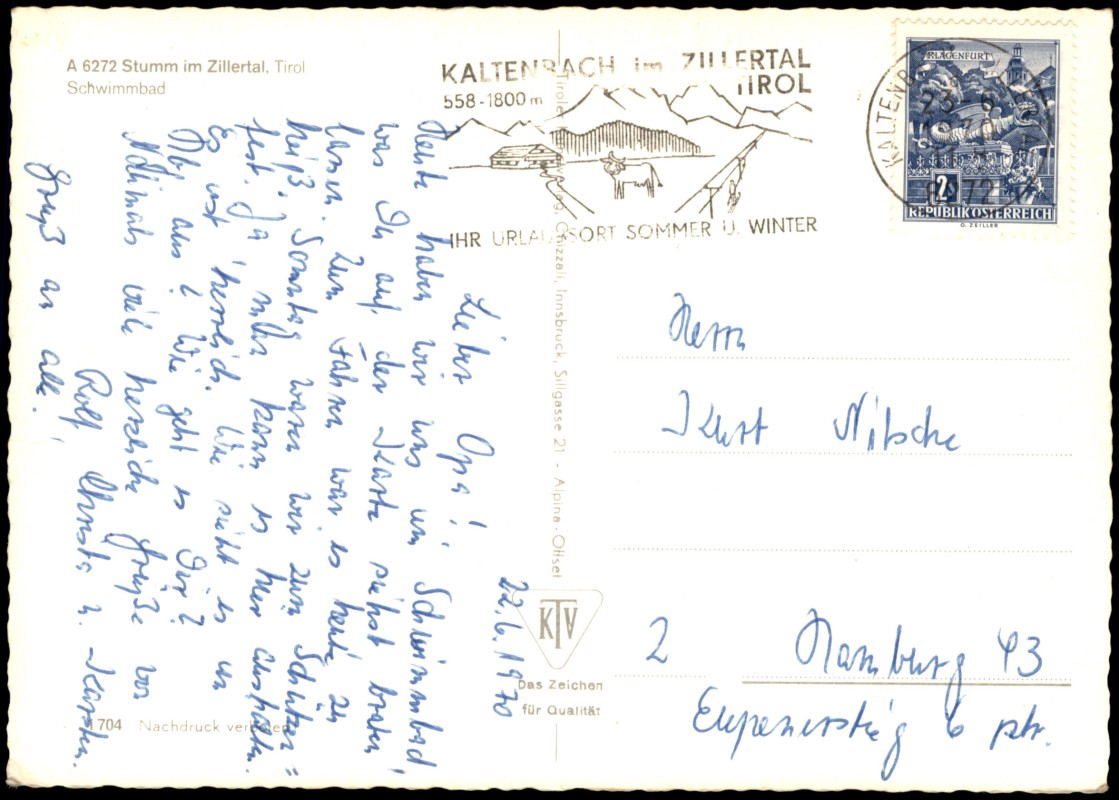 A 6272 Stumm im Zillertal, Tirol
Schwimmbad
KALTENBACH im ZILLERTAL
TIROL
558-1800 m
IHR URLAUBSORT SOMMER U. WINTER
KLAGENFURT
2 S
REPUBLIK ÖSTERREICH
O. ZEILLER
KALTENBACH
23. 6.
6272
22.6.1970
Lieber Opa!
Heute haben wir uns im Schwimmbad
was Du auf der Karte siehst braten
lassen. Zum Fahren war es heute zu
heiß. Sonntag waren wir zum Schützen=
fest. Ja man kann es hier aushalten.
Es ist herrlich. Wie sieht es in
Obl aus? Wie geht es Dir?
Nochmals viele herzliche Grüße von
Rolf, Christa u. Karsten.
Gruß an alle!
Tiroler Verlag, Chizzali, Innsbruck, Sillgasse 21 - Alpina-Offset
KTV
Das Zeichen
für Qualität
1704 Nachdruck verboten
Herrn
Kurt Nitsche
2 Hamburg 43
Eupenerstieg 6 ptr.